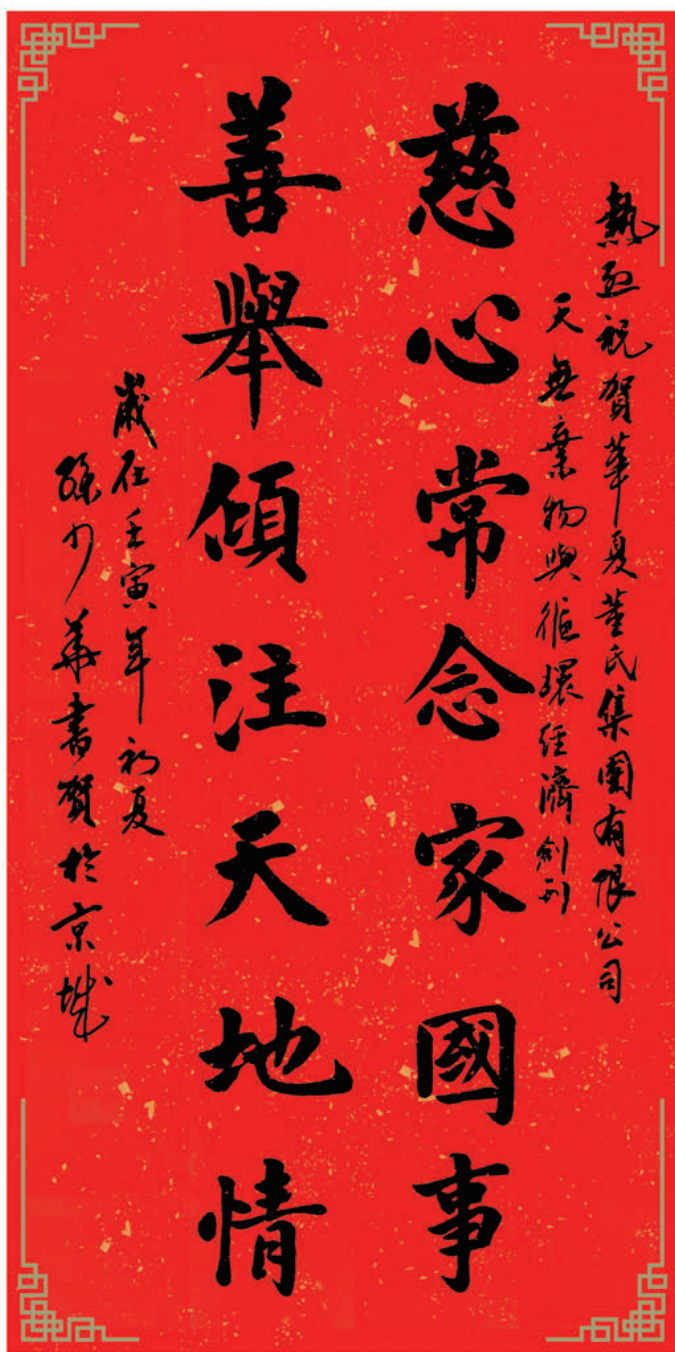 熱烈祝賀華夏董氏集團有限公司
天無棄物與循環經濟創刊
慈心常念家國事
善舉傾注天地情
歲在壬寅年初夏
孫少華書賀於京城